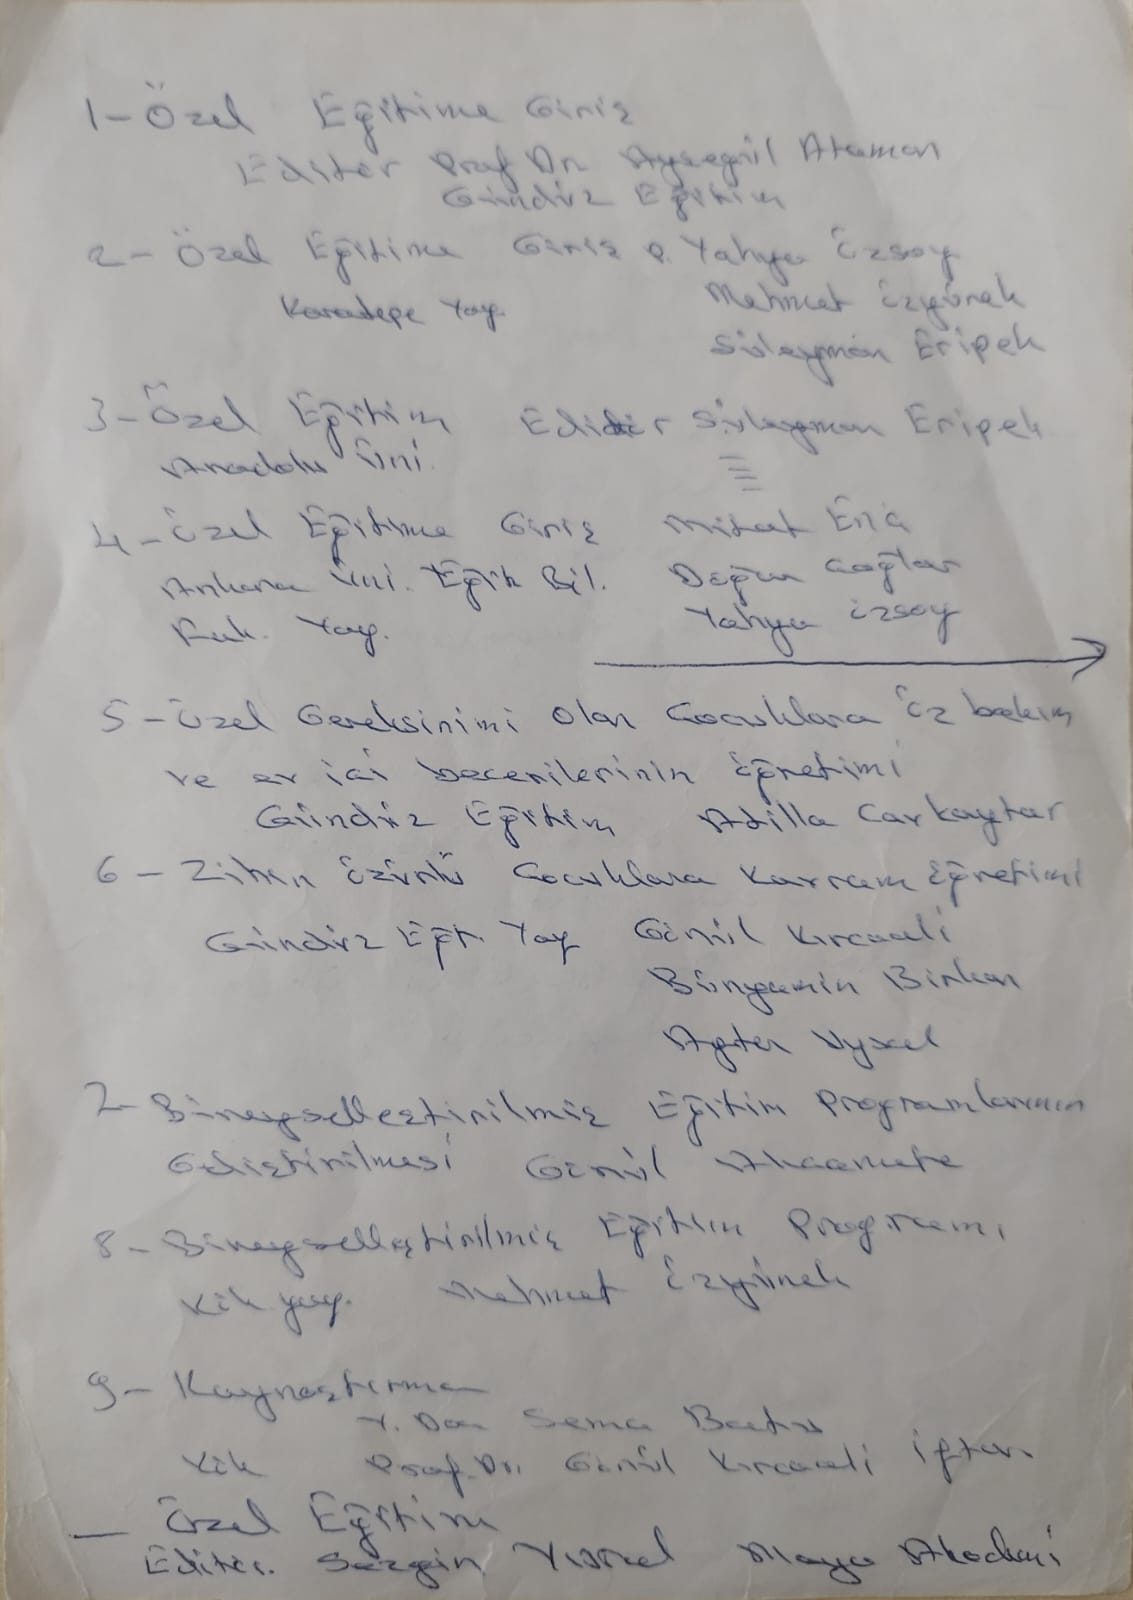 1- Özel Eğitime Giriş
Editör Prof Dr. Ayşegül Ataman
Gündüz Eğitim
2- Özel Eğitime Giriş Yahya Özsoy
Karatepe Yay. Mehmet Özyürek
Süleyman Eripek
3- Özel Eğitim Editör Süleyman Eripek
Anadolu Üni.
4- Özel Eğitime Giriş Mitat Enç
Ankara Üni. Eğit Bil. Doğan Çağlar
Fak. Yay. Yahya Özsoy
5- Özel Gereksinimi Olan Çocuklara Öz bakım
ve ev içi becerilerinin öğretimi
Gündüz Eğitim Atilla Cavkaytar
6- Zihin Özürlü Çocuklara Kavram Öğretimi
Gündüz Eğt. Yay Gönül Kırcaali
Bünyamin Birkan
Ayten Uysal
7- Bireyselleştirilmiş Eğitim Programlarının
Geliştirilmesi Gönül Akçamete
8- Bireyselleştirilmiş Eğitim Programı
Kök yay. Mehmet Özyürek
9- Kaynaştırma
Y. Doç Sema Batu
Kök Prof. Dr. Gönül Kırcaali İftar
— Özel Eğitim
Editör. Sezgin Vural Maya Akademi